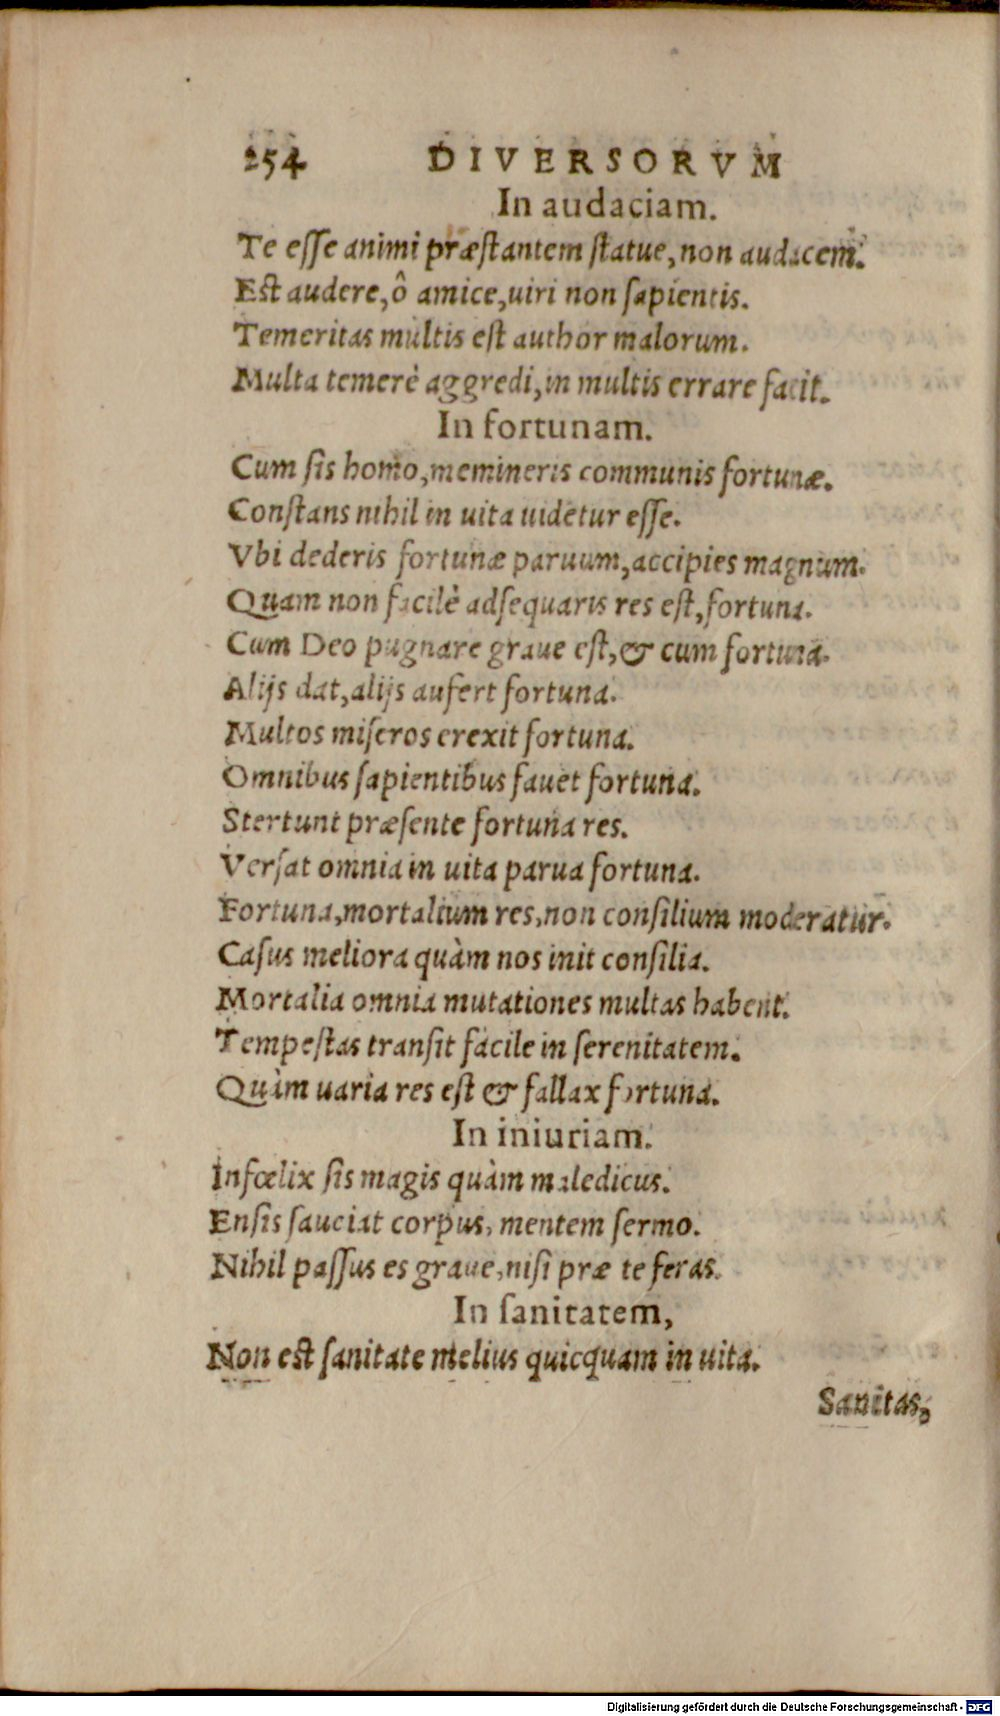 254 DIVERSORVM
In audaciam.
Te esse animi præstantem statue, non audacem.
Est audere, ô amice, uiri non sapientis.
Temeritas multis est author malorum.
Multa temerè aggredi, in multis errare facit.
In fortunam.
Cum sis homo, memineris communis fortunæ.
Constans nihil in uita uidetur esse.
Vbi dederis fortunæ paruum, accipies magnum.
Quam non facilè adsequaris res est, fortuna.
Cum Deo pugnare graue est, & cum fortuna.
Alijs dat, alijs aufert fortuna.
Multos miseros erexit fortuna.
Omnibus sapientibus fauet fortuna.
Stertunt præsente fortuna res.
Versat omnia in uita parua fortuna.
Fortuna, mortalium res, non consilium moderatur.
Casus meliora quàm nos init consilia.
Mortalia omnia mutationes multas habent.
Tempestas transit facile in serenitatem.
Quàm uaria res est & fallax fortuna.
In iniuriam.
Infœlix sis magis quàm maledicus.
Ensis sauciat corpus, mentem sermo.
Nihil passus es graue, nisi præ te feras.
In sanitatem,
Non est sanitate melius quicquam in uita.
Sanitas,
Digitalisierung gefördert durch die Deutsche Forschungsgemeinschaft - DFG